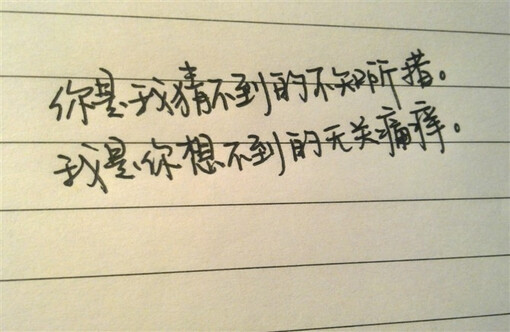 你是我猜不到的不知所措。
我是你想不到的无关痛痒。